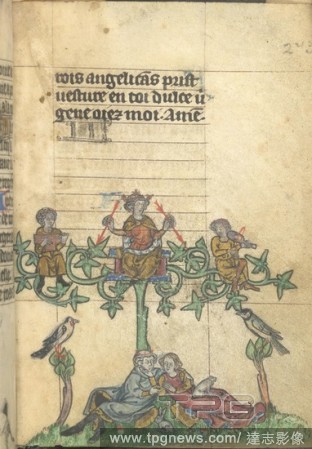 rois angelicãs prist
uesture en toi dulce ũ
gene oiez moi. Amẽ.
TPG
www.tpgnews.com/ 達志影像